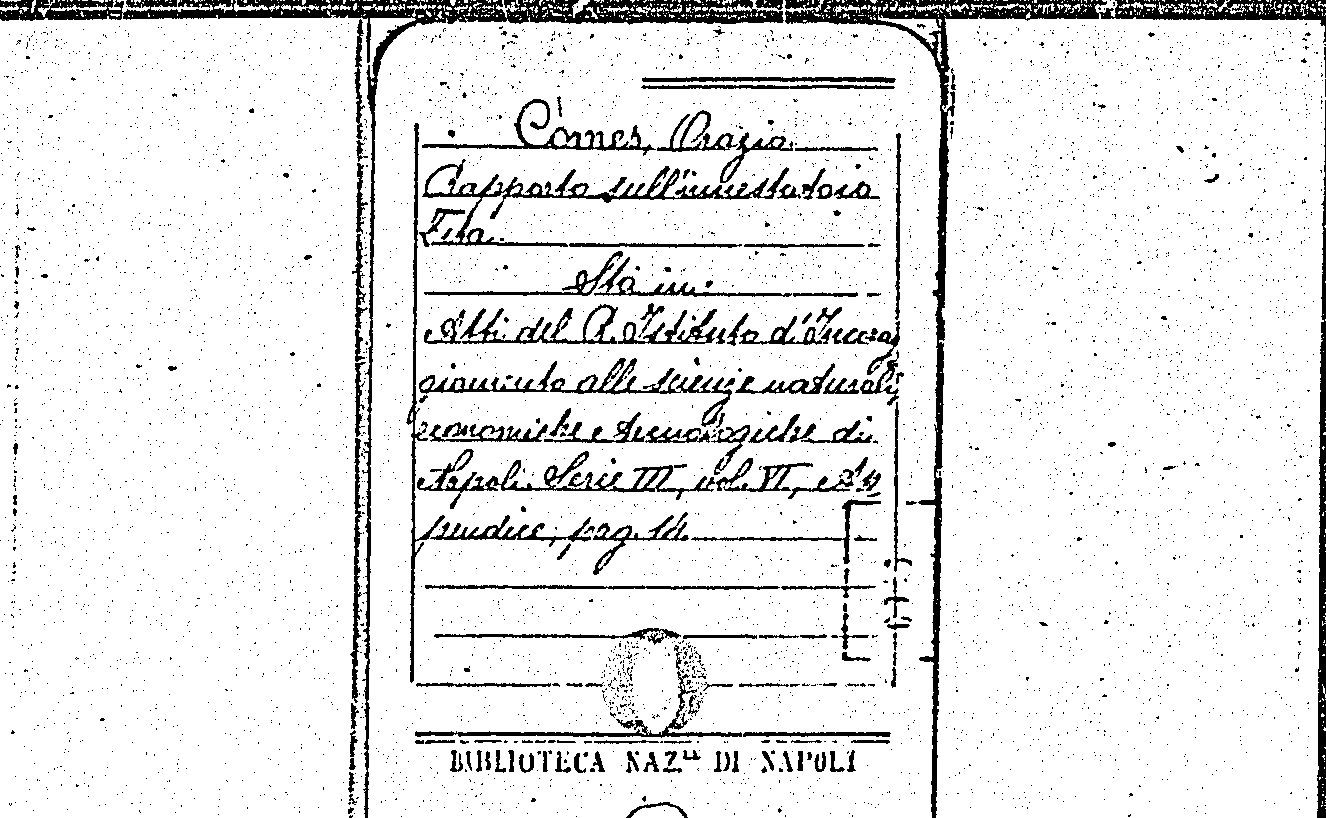 Comes, Orazio.
Rapporto sull'innestatoio
Zisa.
Sta in:
Atti del R. Istituto d'Incorag
giamento alle scienze naturali
economiche e tecnologiche di
Napoli. Serie III, vol. VI, e Ap
pendice; pag. 14.
BIBLIOTECA NAZ.LE DI NAPOLI